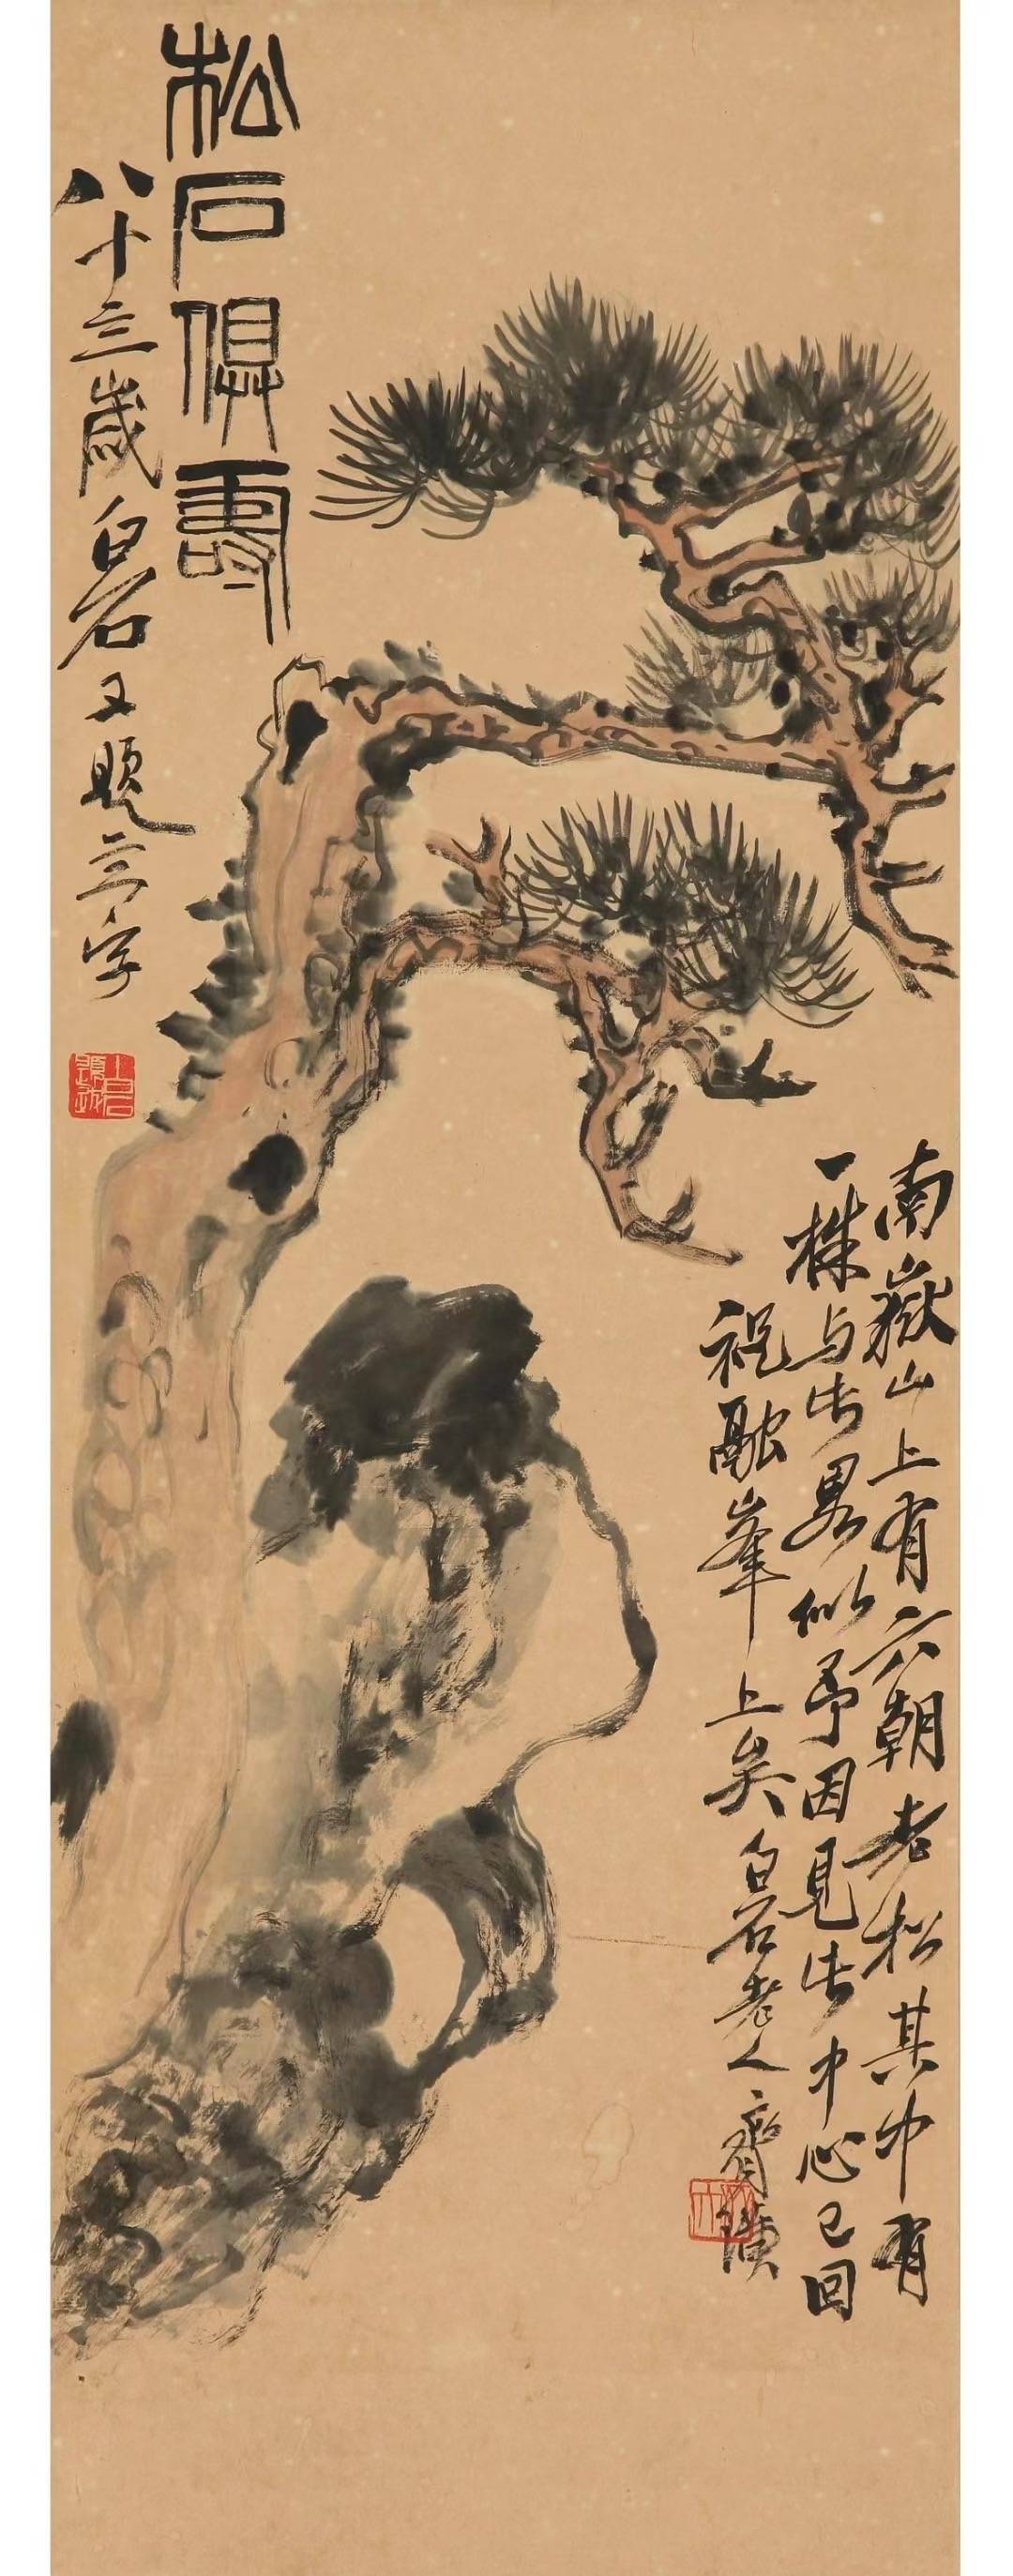 南嶽山上有六朝老松其中有
一株与此畧似予因見此中心已回
祝融峯上矣白石老人齊璜
松石俱壽
八十三歲白石又題三字